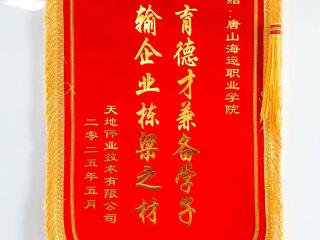 赠：唐山海运职业学院
育德才兼备学子
输企业栋梁之材
天地伟业技术有限公司
二零二五年五月